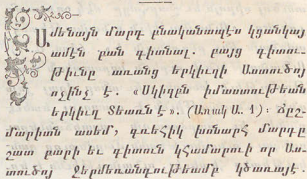 Ամենայն մարդ բնականապէս կցանկայ
ամէն բան գիտնալ. բայց գիտու-
թիւնը առանց երկիւղի Աստուծոյ
ոչինչ է. «Սկիզբն իմաստութեան
երկիւղ Տեառն է». (Առակ Ա. 7)։ Ճըշ-
մարիտն ասեմ, գռեհիկ խոնարհ մարդը
շատ բարի եւ գիտուն կհամարուի որ Աս-
տուծոյ ջերմեռանդութեամբ կծառայէ